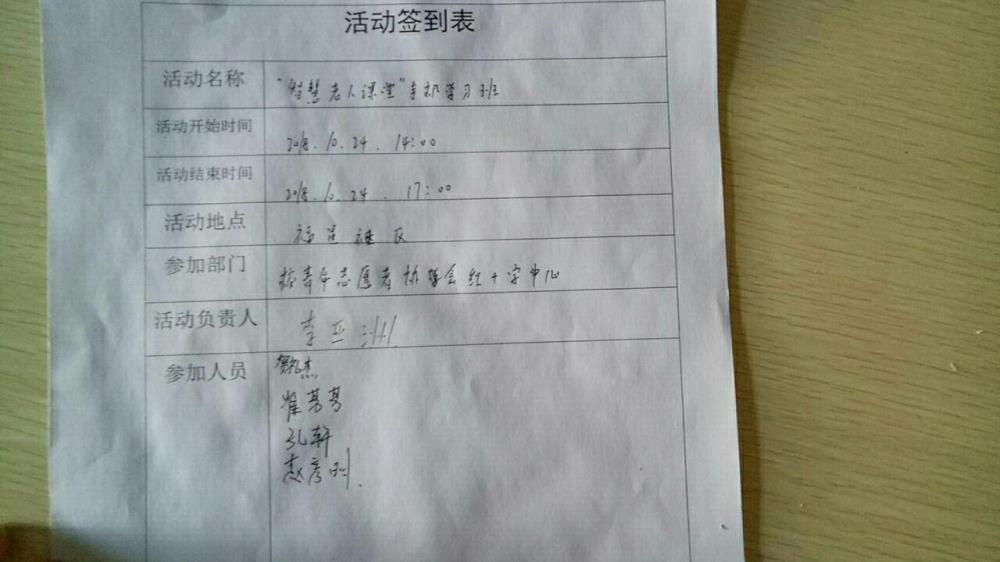 活动签到表
活动名称 "智慧老人课堂"手机学习班
活动开始时间 2018.10.24. 14:00
活动结束时间 2018.10.24. 17:00
活动地点 福星社区
参加部门 青年志愿者协会红十字中心
活动负责人 李亚洲
参加人员 杰
翟芳芳
孔轩
赵彦刚